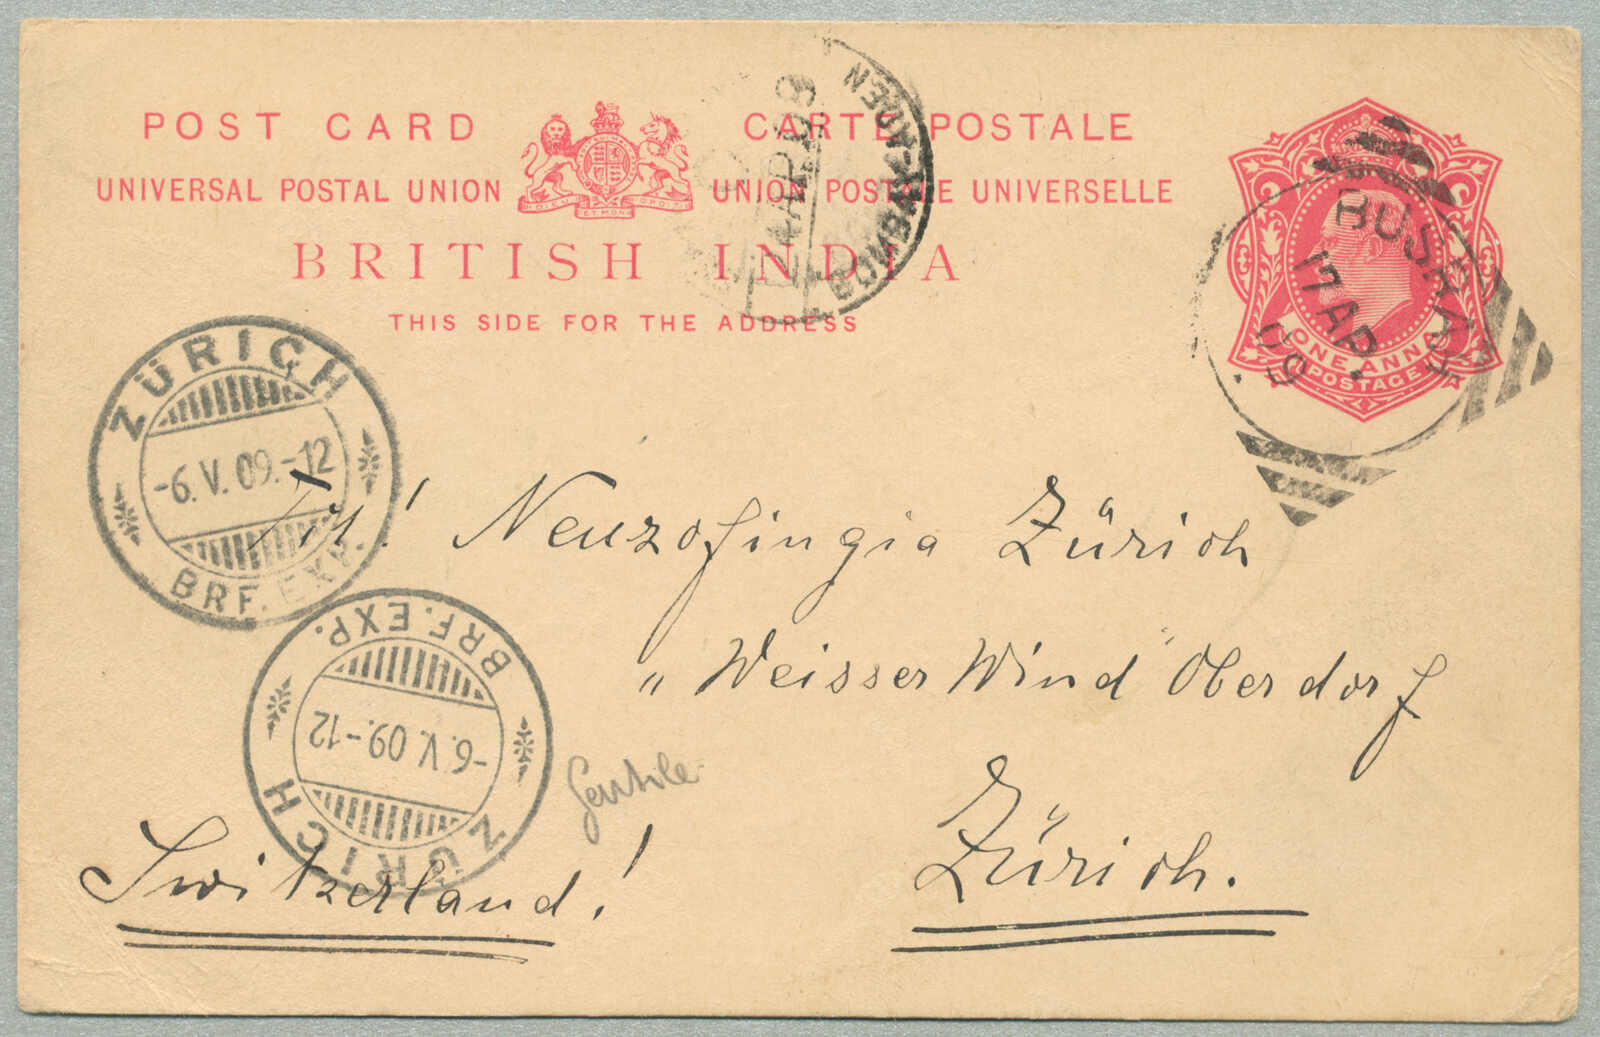 POST CARD CARTE POSTALE
UNIVERSAL POSTAL UNION UNION POSTALE UNIVERSELLE
BRITISH INDIA
THIS SIDE FOR THE ADDRESS
BOMBAY-ADEN
AP. 09
BUSRAH
17 AP.
09
ONE ANNA
POSTAGE
ZÜRICH
-6.V.09.-12
BRF. EXP.
! Neuzofingia Zürich
„Weisser Wind" Oberdorf
Zürich.
BRF. EXP.
-6.V.09.-12
ZÜRICH
Switzerland!